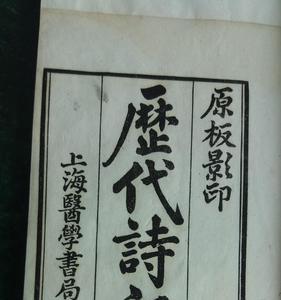 原板影印
歴代詩
上海醫學書局